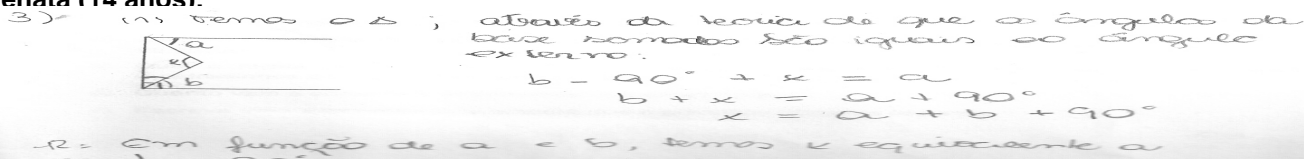 enata (14 anos).
3) (1) Temos o Δ ; através da teoria de que os ângulos da
base somados são iguais ao ângulo
externo.
a
x
(1) b
b - 90° + x = a
b + x = a + 90°
x = a + b + 90°
R: Em função de a e b, temos x equivalente a